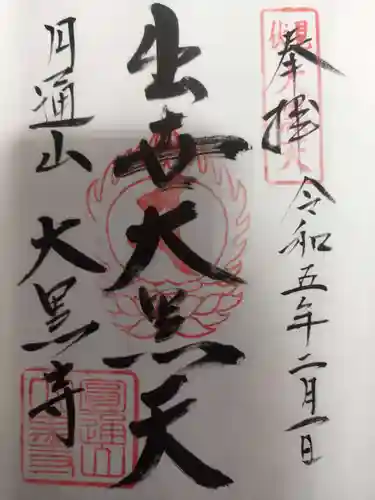 奉拝
令和五年二月一日
出世大黒天
円通山 大黒寺
圓通山
大黒寺